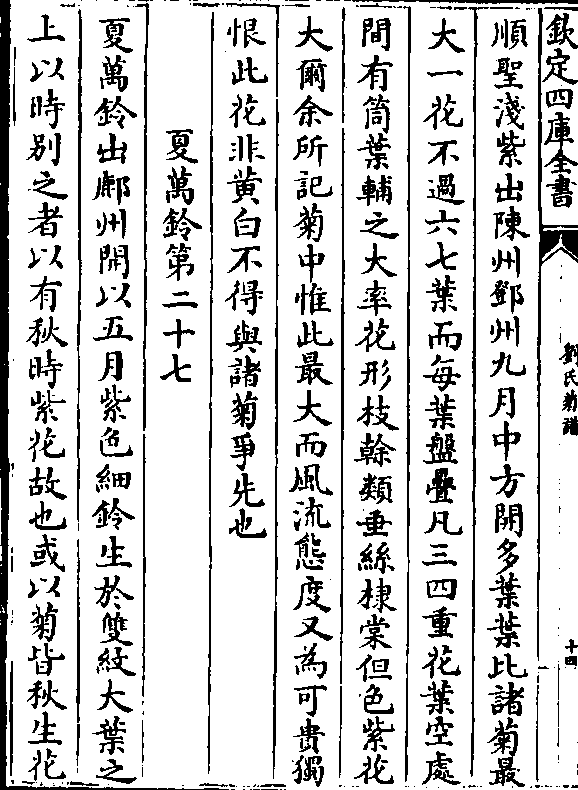 欽定四庫全書
劉氏菊譜
十四
順聖淺紫出陳州鄧州九月中方開多葉葉比諸菊最
大一花不過六七葉而每葉盤疊凡三四重花葉空處
間有筒葉輔之大率花形枝幹類垂絲棣棠但色紫花
大爾余所記菊中惟此最大而風流態度又為可貴獨
恨此花非黄白不得與諸菊爭先也
夏萬鈴第二十七
夏萬鈴出鄜州開以五月紫色細鈴生於雙紋大葉之
上以時别之者以有秋時紫花故也或以菊皆秋生花